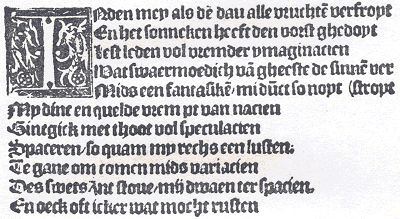 INden mey als dē dau alle vruchtē verfroyt
En het sonneken heeft den vorst ghedoyt
Lest leden vol vremder ymaginacien
Wat swaermoedich vā gheeste de sinnē ver
Mids een fantasikē/mi dūct so noyt (stroyt
My dinc en quelde vrem pt van nacien
Ginegick met thoot vol speculacien
Spaceren/so quam my rechs een lusten:
Te gane om comen mids variacien
Des sweets Int stoue/mij dwaen ter spacien,
En oeck oft icker wat mocht rusten